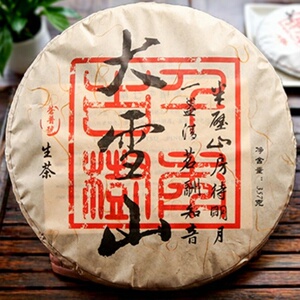 净含量：357克
半壁山房待明月
一盏清茗酬知音
大雪山
千年
古樹
生茶